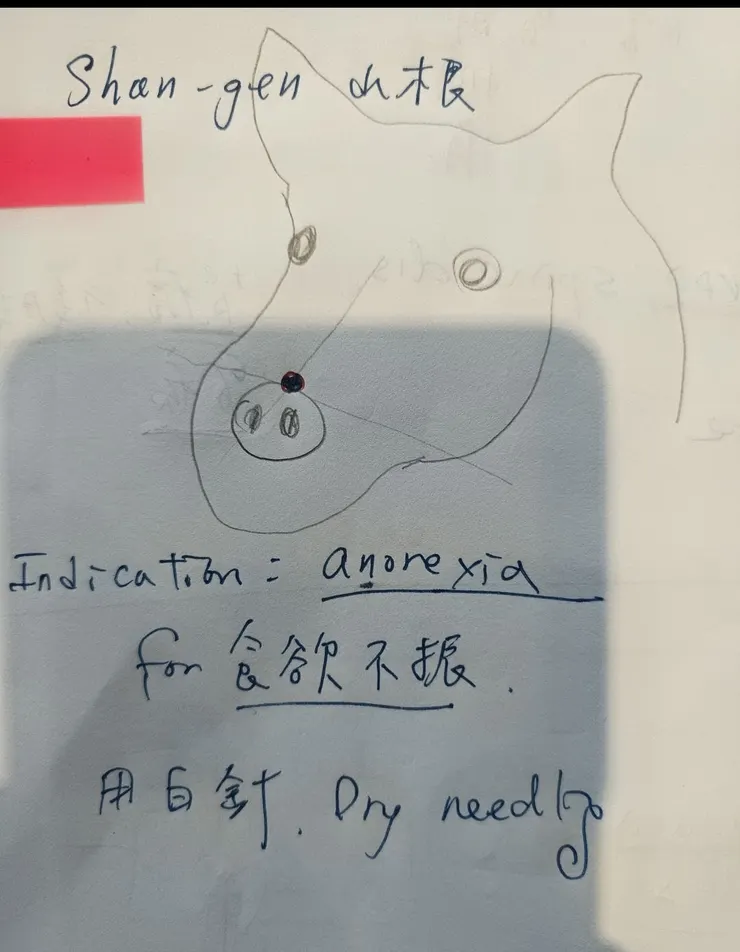 Shan-gen 山根
Indication: anorexia
for 食欲不振.
用白針. Dry needlig